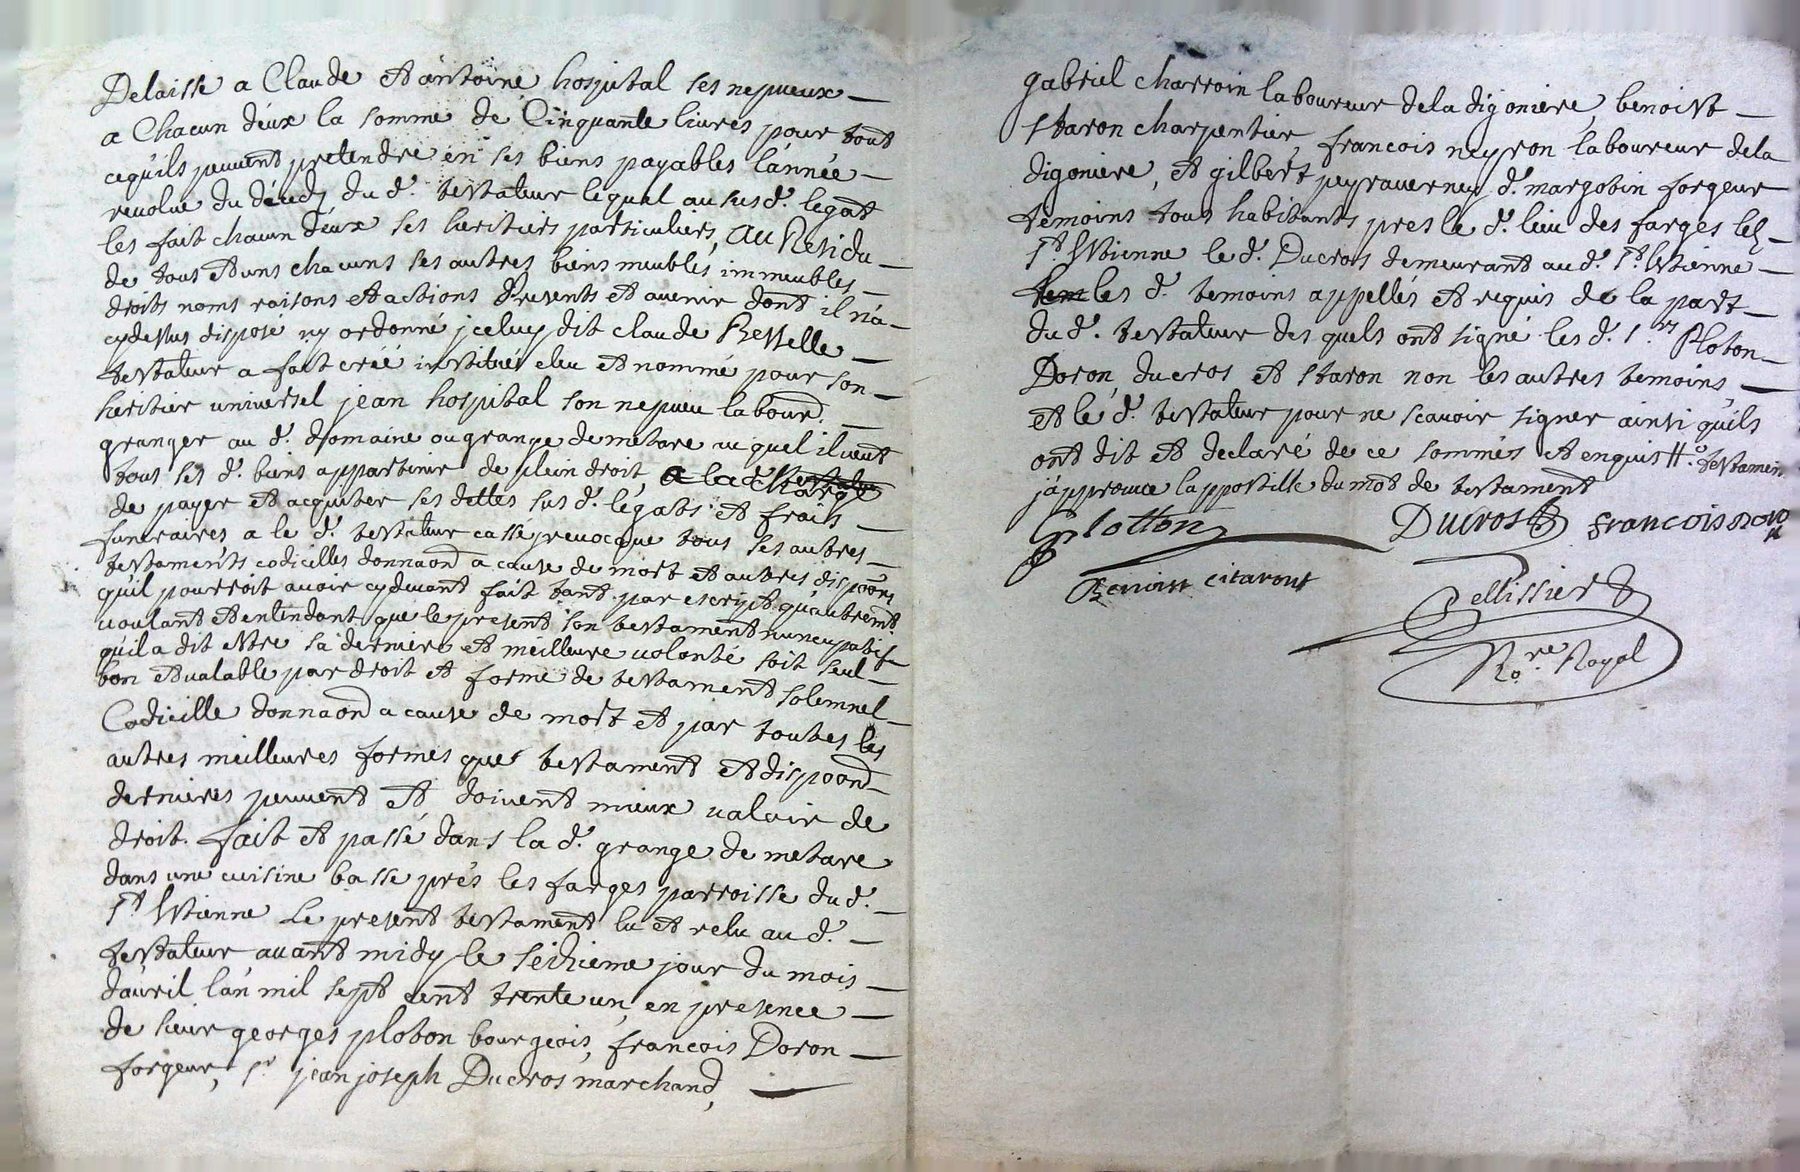 Delaisse a Claude et antoine hospital ses nepueux
a Chacun deux la somme de Cinquante livres pour tout
cequils peuvent pretendre en ses biens payables lannée
revolue du deceds du d. testateur lequel au susd. legat
les fait chacun deux ses heritiers particuliers, au Residu
de tous et uns chacuns ses autres biens meubles immeubles
droits noms raisons et actions Presents et avenir dont il n'a
cydessus dispose ny ordonné jceluy dit claude
testateur a fait créé institué eleu et nommé pour son
heritier universel jean hospital son nepueu labour.
granger au d. domaine ou grange de metare auquel il veut
tous ses d. biens appartenir de plein droit, a la charge
de payer et acquiter ses dettes susd. legats et frais
funeraires a le d. testateur cassé revocque tous ses autres
testaments codicilles donnaond a cause de mort et autres dispoons
quil pourroit avoir cydevant fait tant par escript qu'autremt.
voulant et entendant que le present son testament nuncupatif
quil a dit estre sa derniere et meilleure volonté soit seul
bon et valable par droit et forme de testament solemnel
Codicille donnaond a cause de mort et par toutes les
autres meilleures formes que testament et dispoond
dernieres peuvent et doivent mieux valoir de
droit. fait et passé dans la d. grange de metare
dans une cuisine basse prés les farges parroisse du d.
st. Estienne Le present testament lu et relu au d.
testateur avant midy le seizieme jour du mois
davril lan mil sept cent trente un, en presence
de sieur georges ploton bourgeois, francois Doron
forgeur, sr. jean joseph Ducros marchand,
gabriel charroin laboureur de la digoniere, benoist
staron charpentier, francois neyron laboureur de la
digoniere, et gilbert peyraverney d. margotin forgeur
temoins tous habitants pres le d. lieu des farges lez
st. Estienne le d. Ducros demeurant au d. st. Estienne
les d. temoins appellés et requis de la part
du d. testateur des quels ont signé les d. s.rs Ploton
Doron, ducros et staron non les autres temoins
et le d. testateur pour ne scavoir signer ainsi quils
ont dit et declaré de ce sommés et enquis testament
j'approuve lappostille du mot de testament
Plotton Ducros francois doron
Benoist citaront
Pellissier
No.re Royal